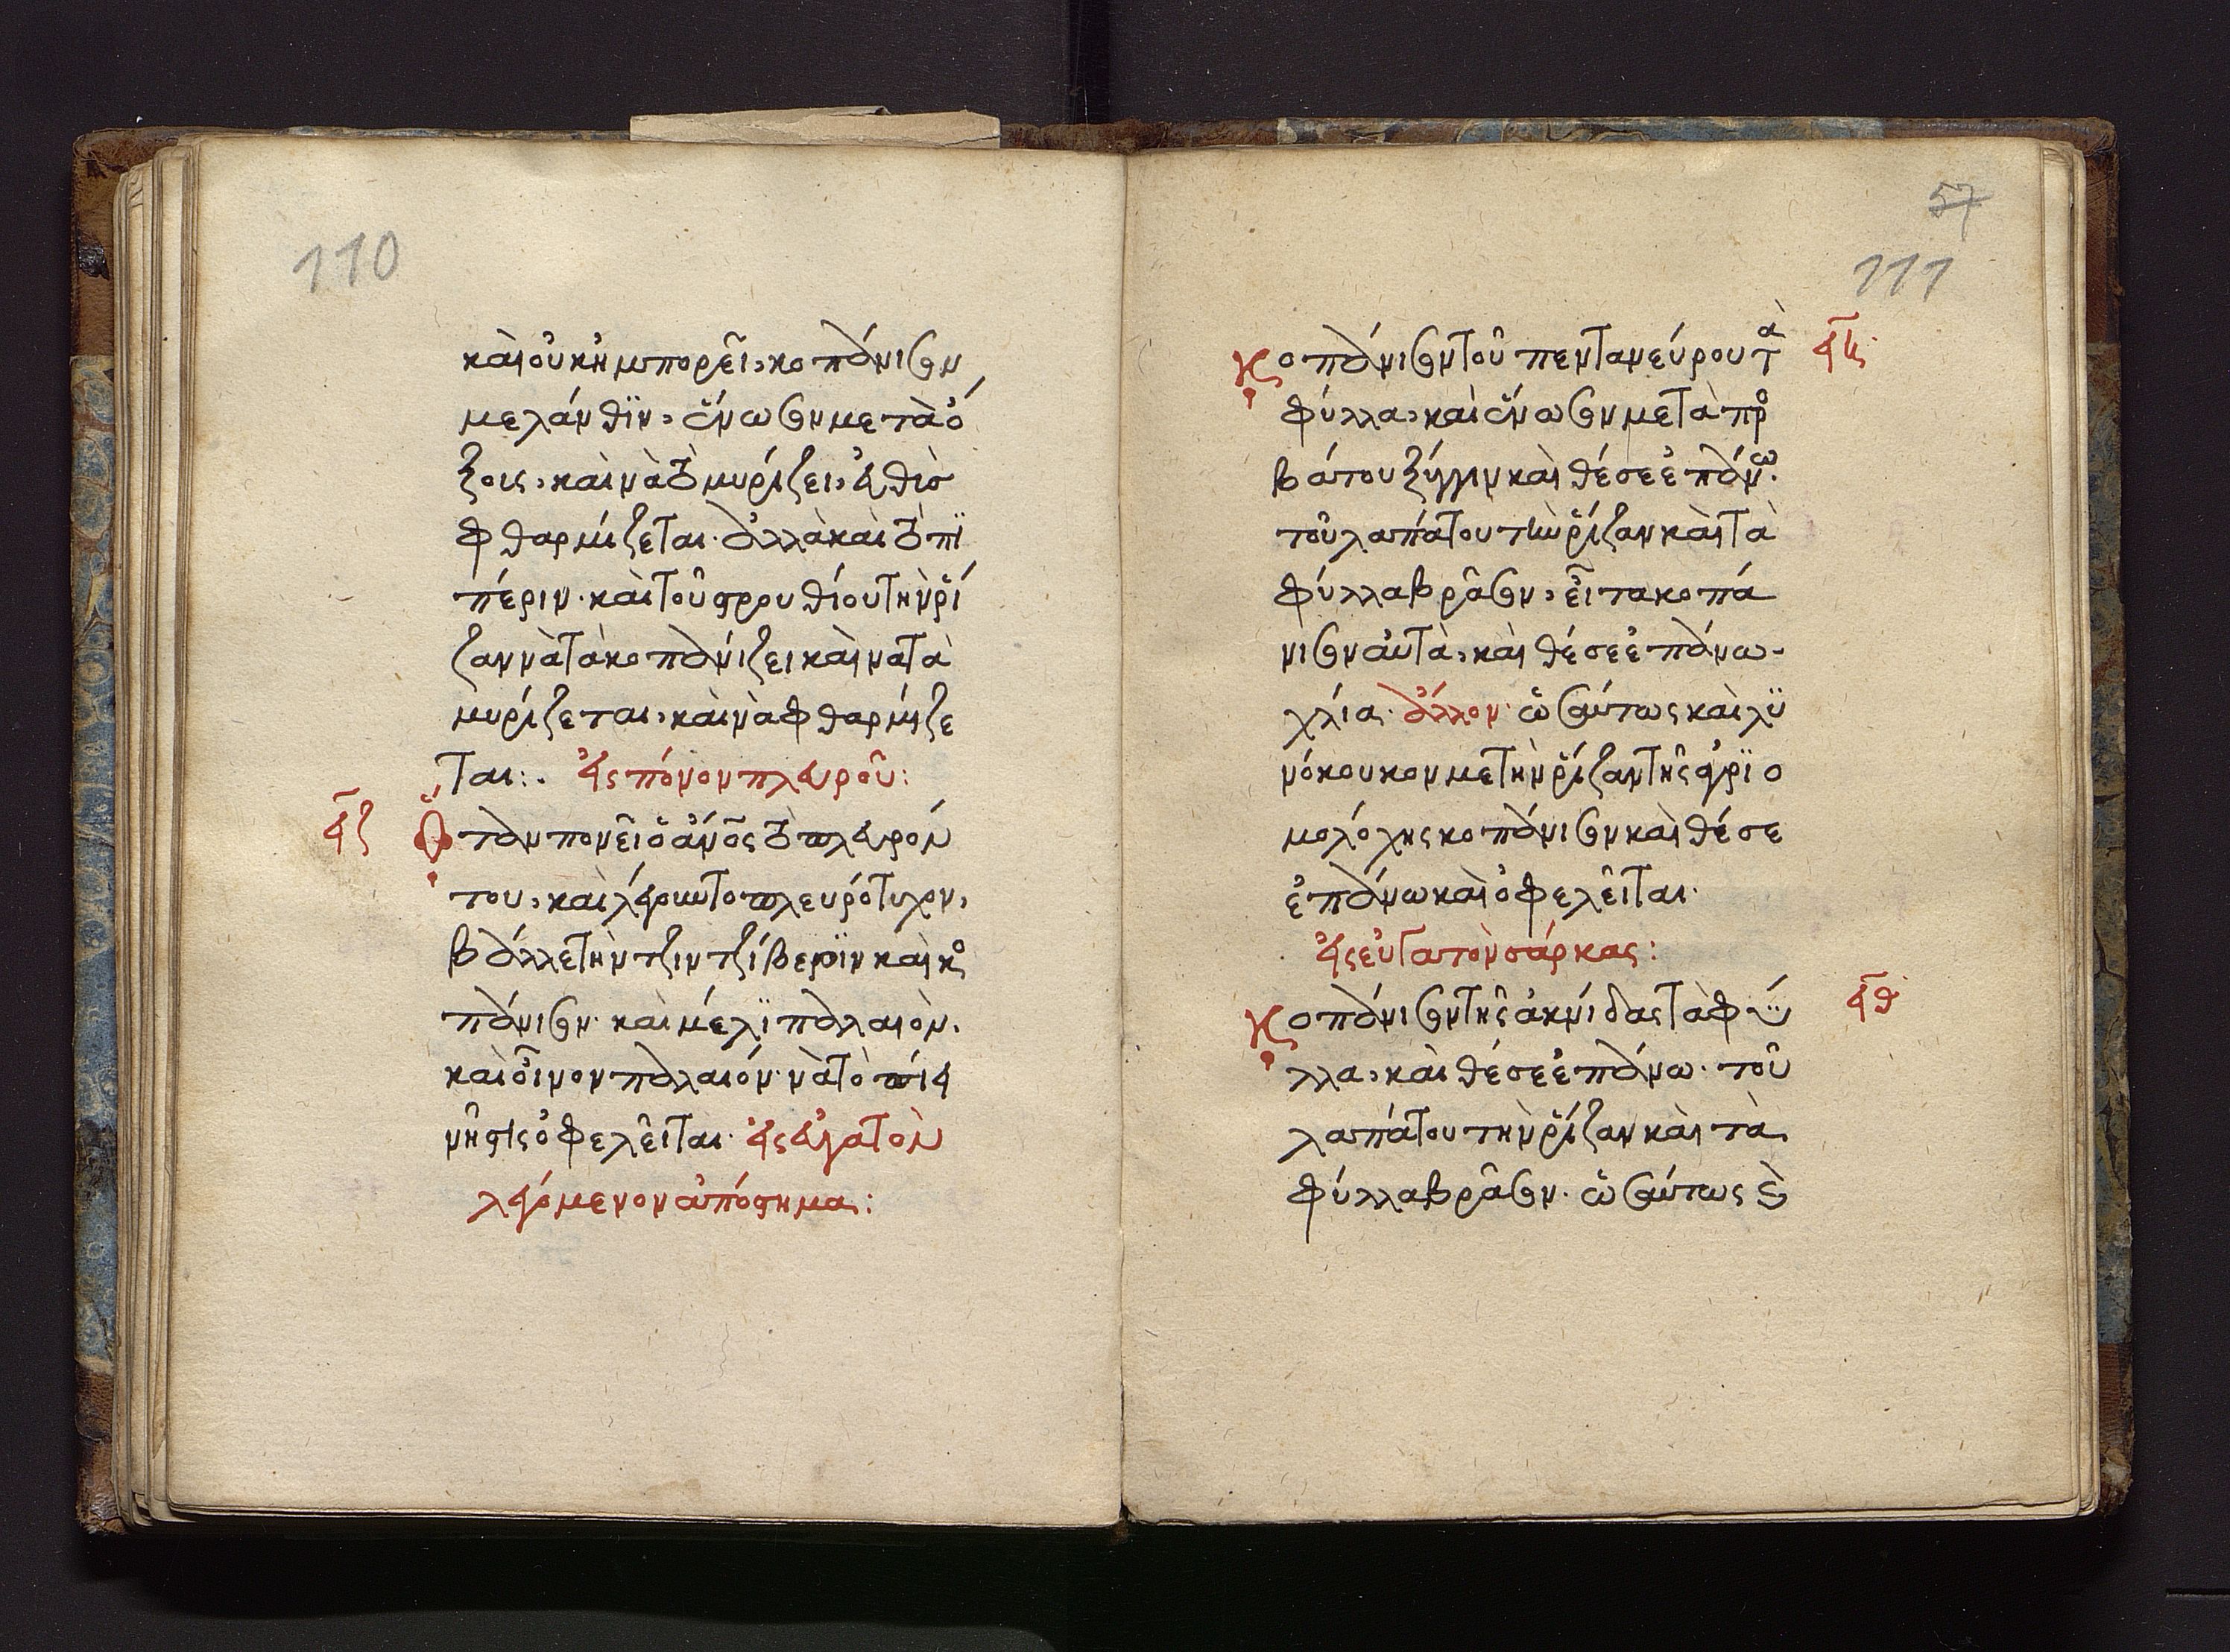 110
καὶ οὐκ ἠμπορεῖ, κοπάνισον
μελάνθϊν, ἕνωσον μετὰ ὀ
ξοις, καὶ νὰ τὸ μυρίζει, εὐθὺς
φθαρμίζεται. ἀλλὰ καὶ τὸ πϊ
πέριν. καὶ τοῦ στρουθίου τὴν ῥί
ζαν νὰ τὰ κοπανίζει καὶ νὰ τὰ
μυρίζεται, καὶ νὰ φθαρμίζε
ται:. εἰς πόνον πλευροῦ:
ϥζ Ὅταν πονεῖ ὁ ἄνος τὸ πλευρόν
του, καὶ λέγουν το πλευρότυλον,
βάλλε τὴν τζιντζίβεριν καὶ κο
πάνισον. καὶ μέλϊ παλαιὸν.
καὶ οἶνον παλαιόν. νὰ τὸ πίει
νῆστις ὀφελεῖται. εἰς
λεγόμενον ἀπόστημα:
57
111
Κοπάνισον τοῦ πεντανεύρου τὰ ϥη
φύλλα, καὶ ἕνωσον μετὰ προ
βάτου ξύγγιν καὶ θέσε ἐπάνω.
τοῦ λαπάτου τὴν ῥίζαν καὶ τὰ
φύλλα βράσον, εἶτα κοπά
νισον αὐτὰ, καὶ θέσε ἐπάνω
χλία. ἄλλον. ὡσαύτως καὶ λϋ
νόκουκον μὲ τὴν ῥίζαν τῆς ἀγριο
μολόχης κοπάνισον καὶ θέσε
ἐπάνω καὶ ὀφελεῖται.
εἰς σάρκας:
Κοπάνισον τῆς ἀκνίδας τὰ φύ ϥθ
λλα, καὶ θέσε ἐπάνω. τοῦ
λαπάτου τὴν ῥίζαν καὶ τὰ
φύλλα βράσον. ὡσαύτως